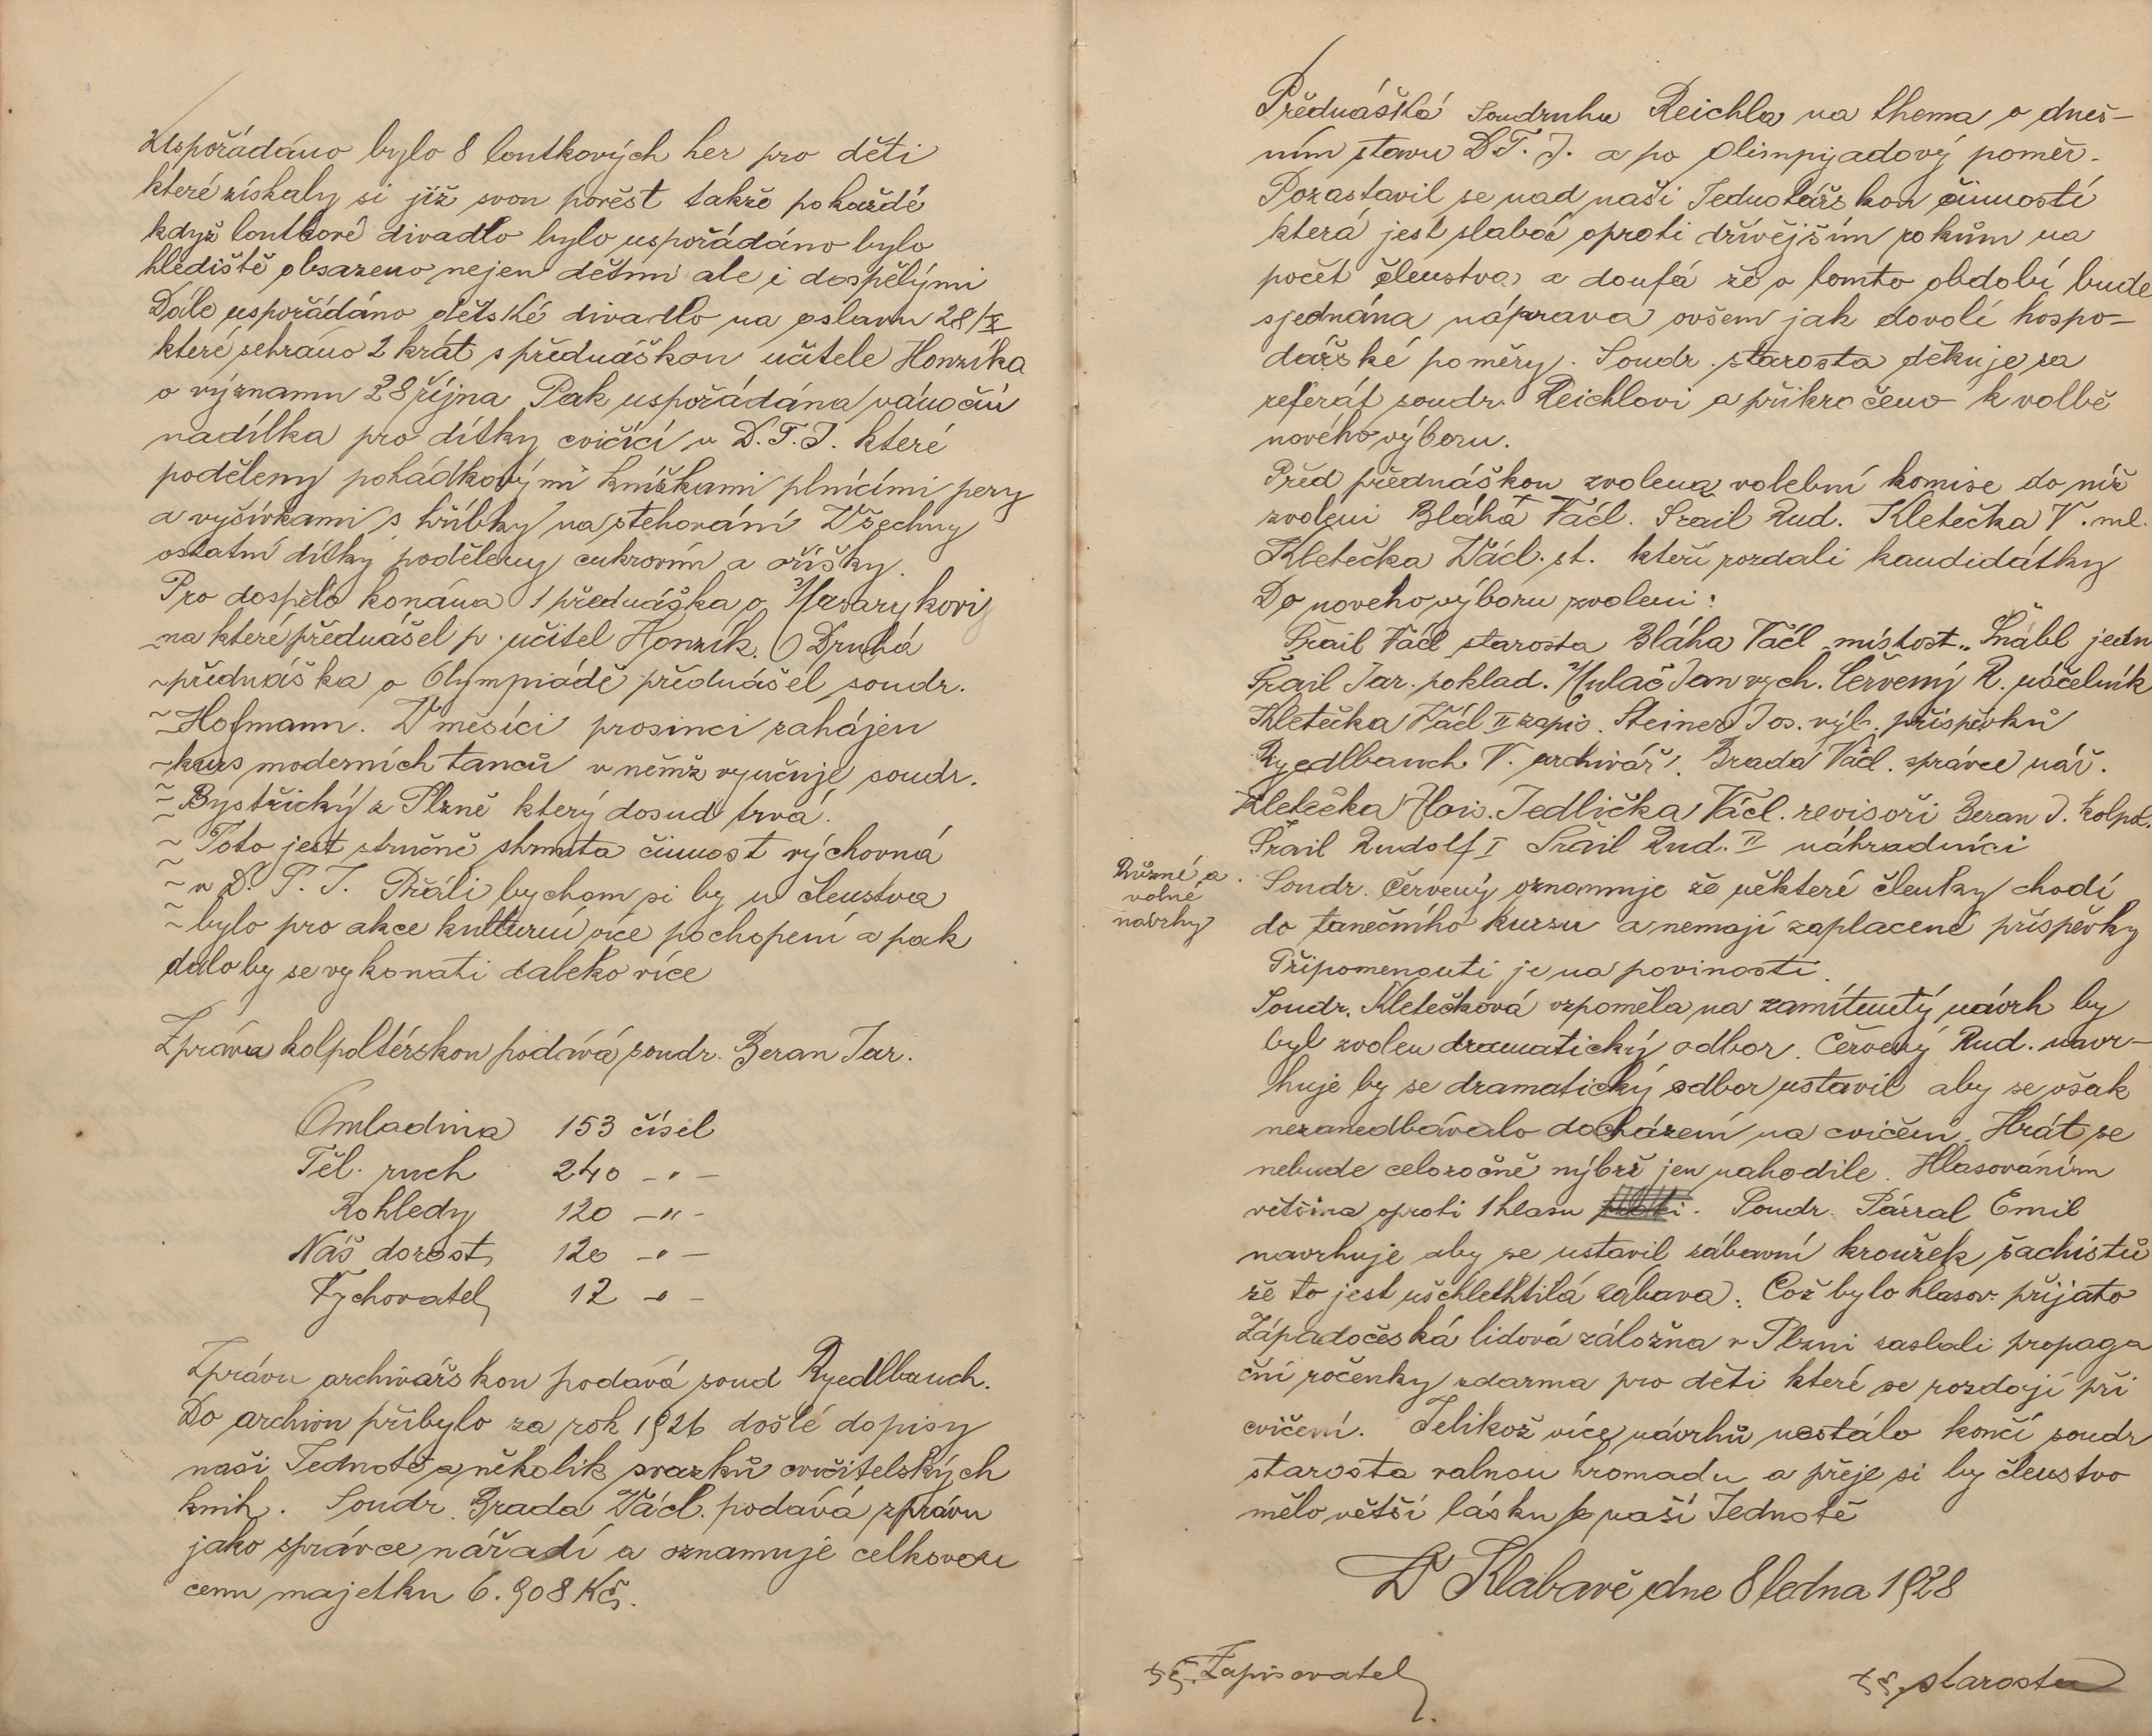 Uspořádáno bylo 8 loutkových her pro děti
které získaly si již svou pověst takže pokaždé
když loutkové divadlo bylo uspořádáno bylo
hlediště obsazeno nejen dětmi ale i dospělými
Dále uspořádáno dětské divadlo na oslavu 28/X
které sehráno 2 krát s přednáškou učitele Honzíka
o významu 28 října Pak uspořádána vánoční
nadílka pro dítky cvičící v D.T.J. které
poděleny pohádkovými knížkami plnícími pery
a vyšívkami s hříbky na stehování Všechny
ostatní dítky poděleny cukrovím a oříšky.
Pro dospělé konána 1 přednáška o Masarykovi
na které přednášel p. učitel Honzík. Druhá
přednáška o Olympiádě přednášel soudr.
Hofmann. V měsíci prosinci zahájen
kurs moderních tanců v němž vyučuje soudr.
Bystřický z Plzně který dosud trvá.
Toto jest stručně shrnuta činnost výchovná
v D.T.J. Přáli bychom si by u členstva
bylo pro akce kulturní více pochopení a pak
dalo by se vykonati daleko více
Zprávu kolpoltérskou podává soudr. Beran Jar.
Omladina 153 čísel
Těl. ruch 240 -"-
Rohledy 120 -"-
Náš dorost 120 -"-
Vychovatel 12 -"-
Zprávu archivářskou podává soud Ryedlbauch.
Do archivu přibylo za rok 1926 došlé dopisy
naši Jednotě a několik svazků cvičitelských
knih. Soudr. Brada Václ. podává zprávu
jako správce nářadí a oznamuje celkovou
cenu majetku 6.908 Kč.
Přednáška soudruhu Reichla na thema o dneš-
ním stavu D.T.J. a po Olimpyadový poměr.
Pozastavil se nad naší Jednotářskou činností
která jest slabá oproti dřívějším rokům na
počet členstva a doufá že v tomto období bude
sjednána náprava ovšem jak dovolí hospo-
dářské poměry. Soudr. starosta děkuje za
referát soudr. Reichlovi a přikročeno k volbě
nového výboru.
Před přednáškou zvolena volební komise do níž
zvoleni Bláha Václ. Šrail Rud. Kletečka V. ml.
Kletečka Václ. st. kteří rozdali kandidátky
Do nového výboru zvoleni:
Šrail Václ starosta Bláha Václ místost.. Šnábl jedn
Šrail Jar. poklad. Mulač Jan vych. Červený R. náčelník
Kletečka Václ II zapis. Steiner Jos. výb. příspěvků
Ryedlbauch V. archivář. Brada Václ. správce nář.
Kletečka Alois. Jedlička Václ. revisoři Beran J. kolpol.
Šrail Rudolf I Šrail Rud. II náhradníci
Různé a
volné
návrhy
Soudr. Červený oznamuje že některé členky chodí
do tanečního kurzu a nemají zaplacené příspěvky
Připomenouti je na povinosti.
Soudr. Kletečková vzpoměla na zamítnutý návrh by
byl zvolen dramatický odbor. Červený Rud. navr-
huje by se dramatický odbor ustavil aby se však
nezanedbávalo docházení na cvičení. Hrát se
nebude celoročně nýbrž jen nahodile. Hlasováním
většina oproti 1 hlasu. Soudr. Pázral Emil
navrhuje aby se ustavil zábavní kroužek šachistů
že to jest ušchlethtilá zábava. Což bylo hlasov. přijato
Západočeská lidová záložna v Plzni zaslali propaga
ční ročenky zdarma pro děti které se rozdají při
cvičení. Jelikož více návrhů nestálo končí soudr
starosta valnou hromadu a přeje si by členstvo
mělo větší lásku k naší Jednotě
V Klabavě dne 8 ledna 1928
Zapisovatel
starosta